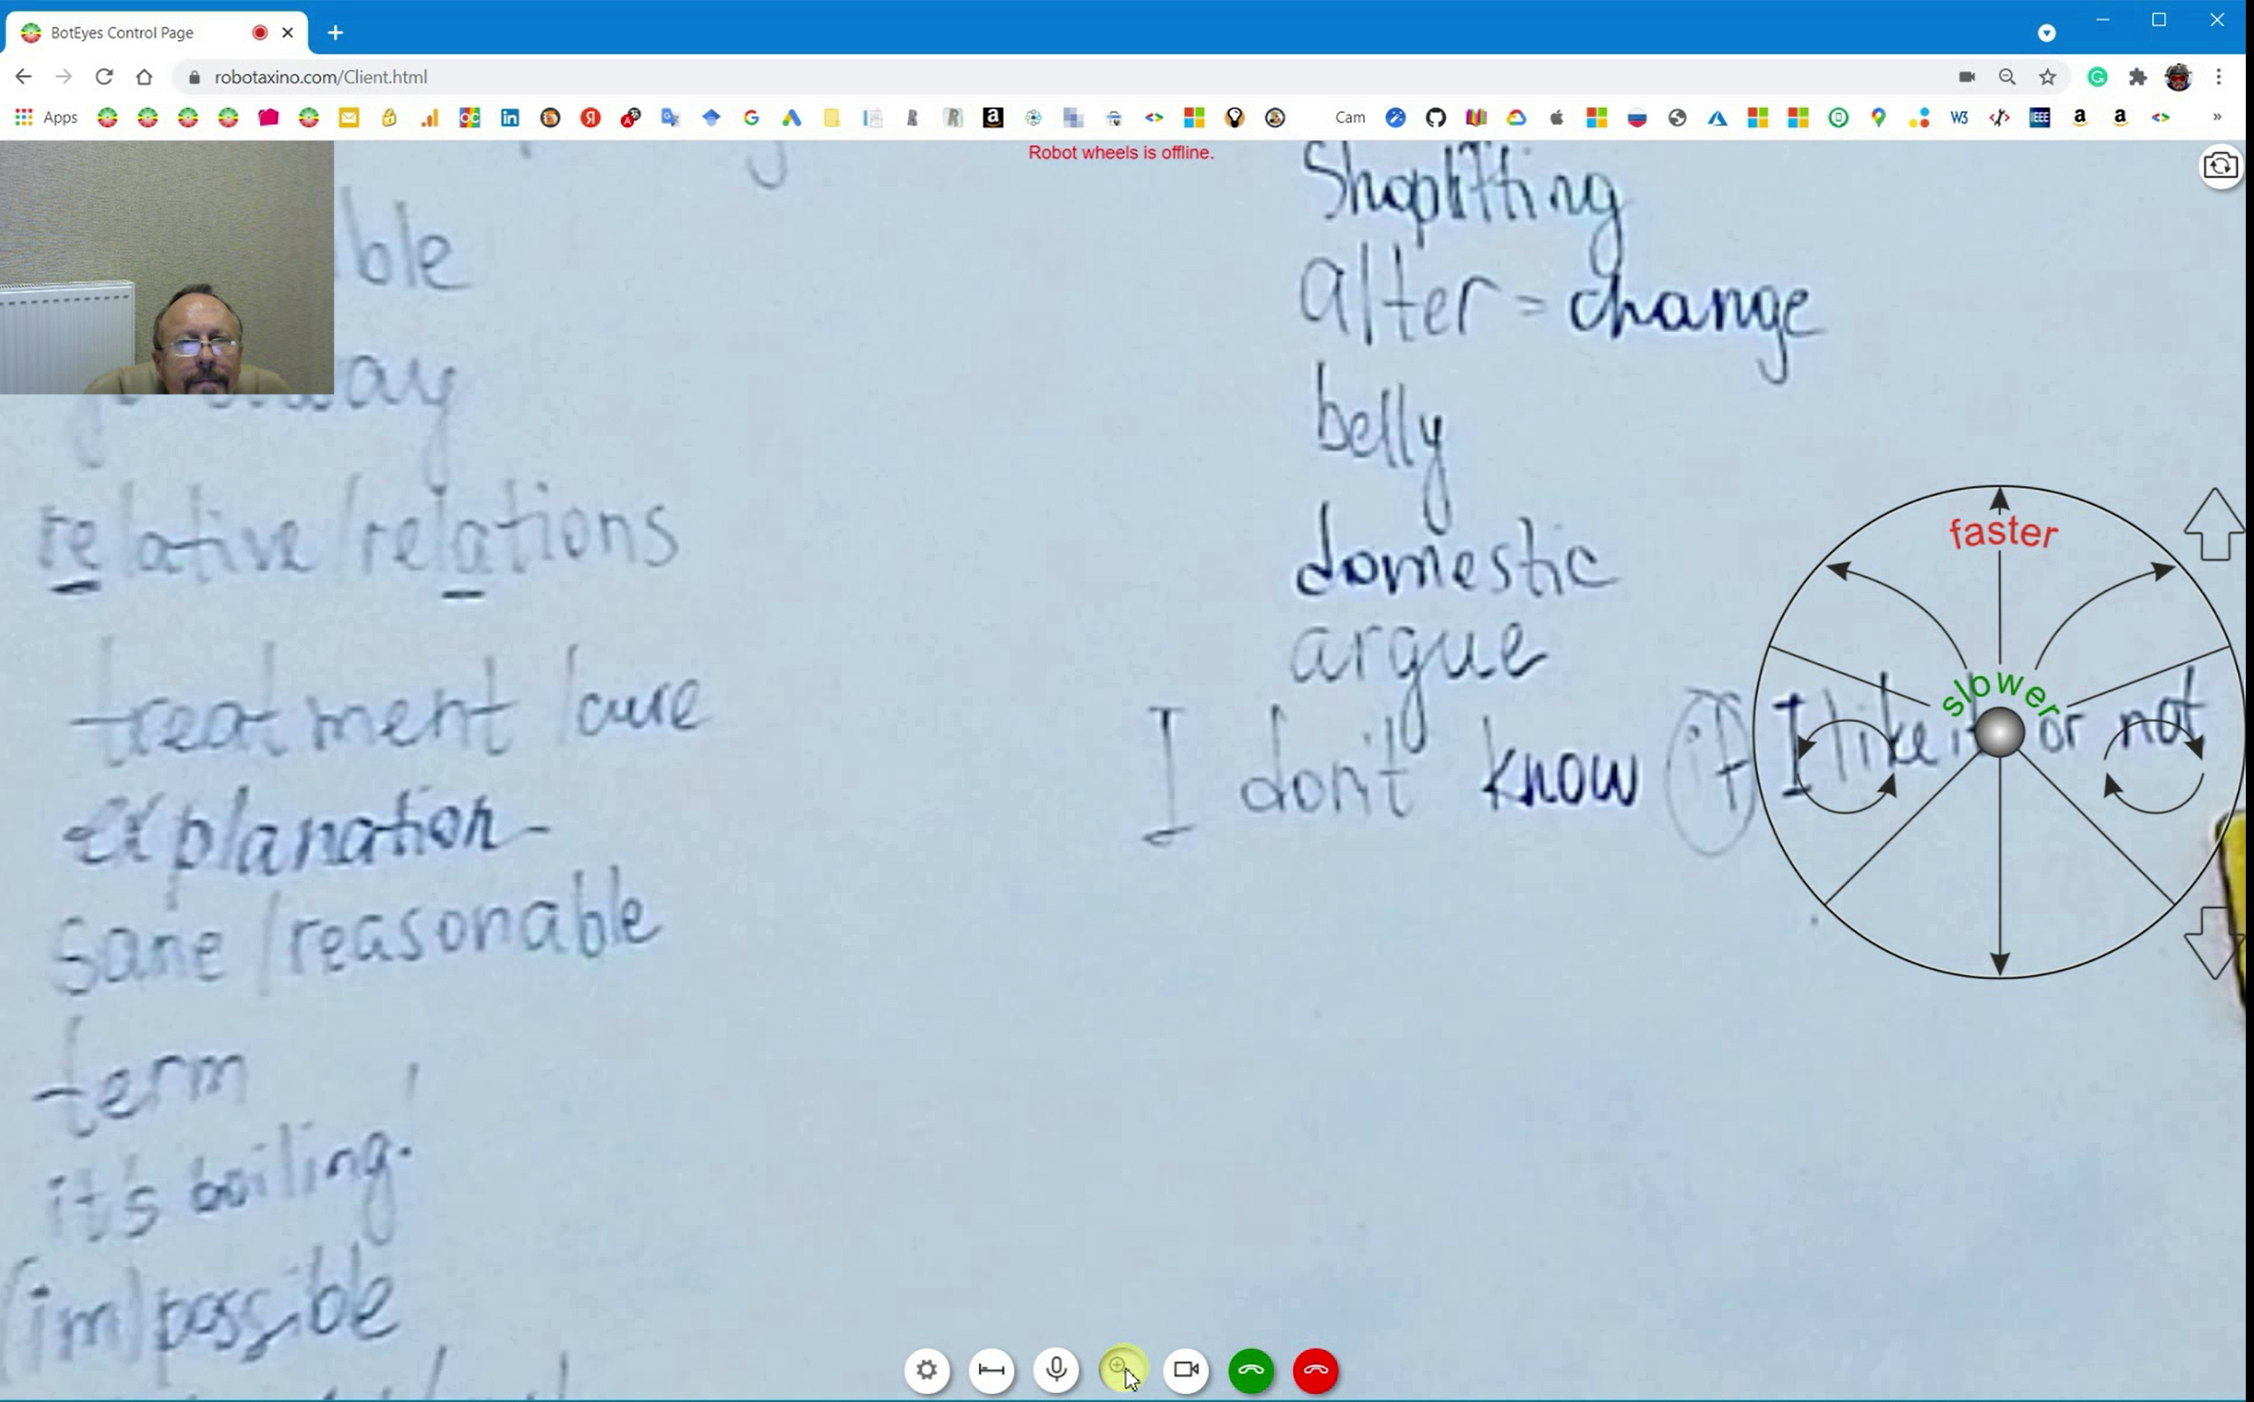 BotEyes Control Page
robotaxino.com/Client.html
Apps
Cam
W3
IEEE
Robot wheels is offline.
ble
way
relative/relations
treatment /cure
explanation
sane /reasonable
term
it's boiling!
(im)possible
Shoplifting
alter = change
belly
domestic
argue
I don't know if I like it or not
faster
slower